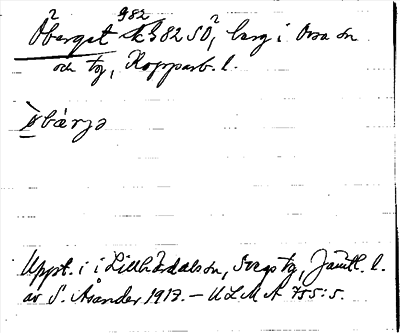 982
Öberget k 82 SÖ, berg i Orsa sn
och tg, Kopparb. l.
öbärjə
Uppt. i Lillhärdals sn, Svegs tg, Jämtl. l.
av S. Åsander 1917. – ULMA 755:5.